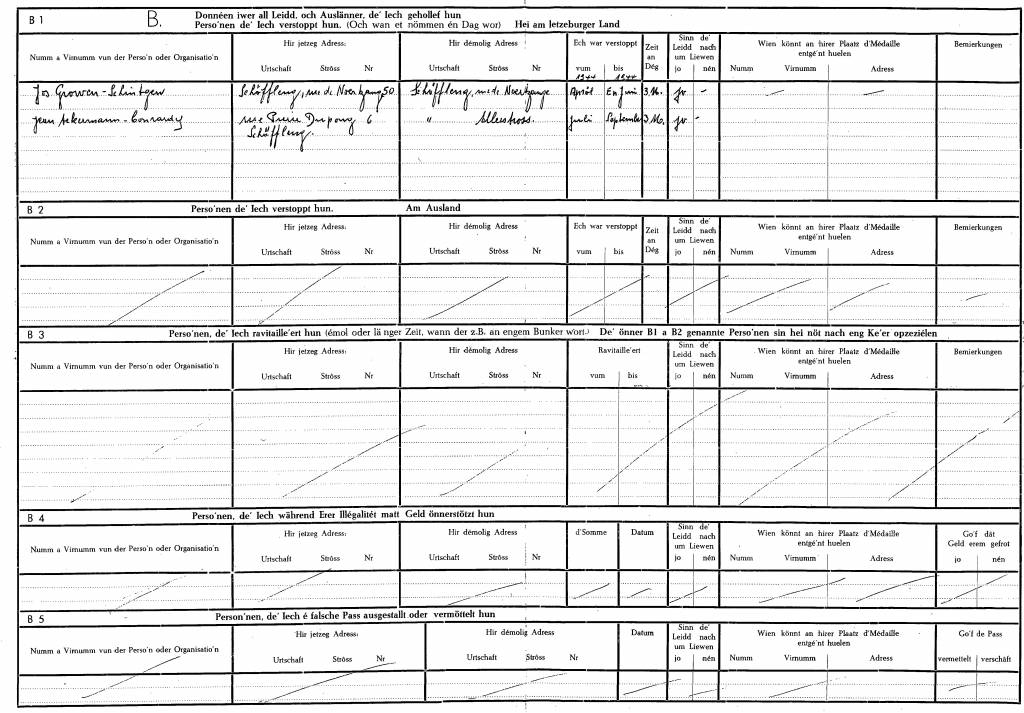 B 1 B. Donnéen iwer all Leidd, och Auslänner, de' Iech gehollef hun
Perso'nen de' Iech verstoppt hun. (Och wan et nömmen én Dag wor) Hei am letzeburger Land
Numm a Virnumm vun der Perso'n oder Organisatio'n
Hir jetzeg Adress:
Urtschaft Ströss Nr
Hir démolig Adress
Urtschaft Ströss Nr
Ech war verstoppt
vum bis
1944 1944
Zeit
an
Dég
Sinn de'
Leidd nach
um Liewen
jo nén
Wien könnt an hirer Plaatz d'Médaille
entgé'nt huelen
Numm Virnumm Adress
Bemierkungen
Jos Growen-Schintgen Schöffleng, rue de Noertgang 50 Schöffleng, rue de Noertgange Apröl En Juni 3 M. jo - — —
Jean Ackermann-Conrardy rue Pierre Dupong 6 " juli September 3 M. jo -
Schöffleng.
B 2 Perso'nen de' Iech verstoppt hun. Am Ausland
Numm a Virnumm vun der Perso'n oder Organisatio'n
Hir jetzeg Adress:
Urtschaft Ströss Nr
Hir démolig Adress
Urtschaft Ströss Nr
Ech war verstoppt
vum bis
Zeit
an
Dég
Sinn de'
Leidd nach
um Liewen
jo nén
Wien könnt an hirer Plaatz d'Médaille
entgé'nt huelen
Numm Virnumm Adress
Bemierkungen
B 3 Perso'nen, de' Iech ravitaille'ert hun (émol oder länger Zeit, wann der z.B. an engem Bunker wort.) De' önner B1 a B2 genannte Perso'nen sin hei nöt nach eng Ke'er opzeziélen
Numm a Virnumm vun der Perso'n oder Organisatio'n
Hir jetzeg Adress:
Urtschaft Ströss Nr
Hir démolig Adress
Urtschaft Ströss Nr
Ravitaille'ert
vum bis
Sinn de'
Leidd nach
um Liewen
jo nén
Wien könnt an hirer Plaatz d'Médaille
entgé'nt huelen
Numm Virnumm Adress
Bemierkungen
B 4 Perso'nen, de' Iech während Erer Illégalitét matt Geld önnerstötzt hun
Numm a Virnumm vun der Perso'n oder Organisatio'n
Hir jetzeg Adress:
Urtschaft Ströss Nr
Hir démolig Adress
Urtschaft Ströss Nr
d'Somme Datum
Sinn de'
Leidd nach
um Liewen
jo nén
Wien könnt an hirer Plaatz d'Médaille
entgé'nt huelen
Numm Virnumm Adress
Go'f dât
Geld erem gefrot
jo nén
B 5 Person'nen, de' Iech é falsche Pass ausgestallt oder vermöttelt hun
Numm a Virnumm vun der Perso'n oder Organisatio'n
Hir jetzeg Adress:
Urtschaft Ströss Nr
Hir démolig Adress
Urtschaft Ströss Nr
Datum
Sinn de'
Leidd nach
um Liewen
jo nén
Wien könnt an hirer Plaatz d'Médaille
entgé'nt huelen
Numm Virnumm Adress
Go'f de Pass
vermettelt verschâft